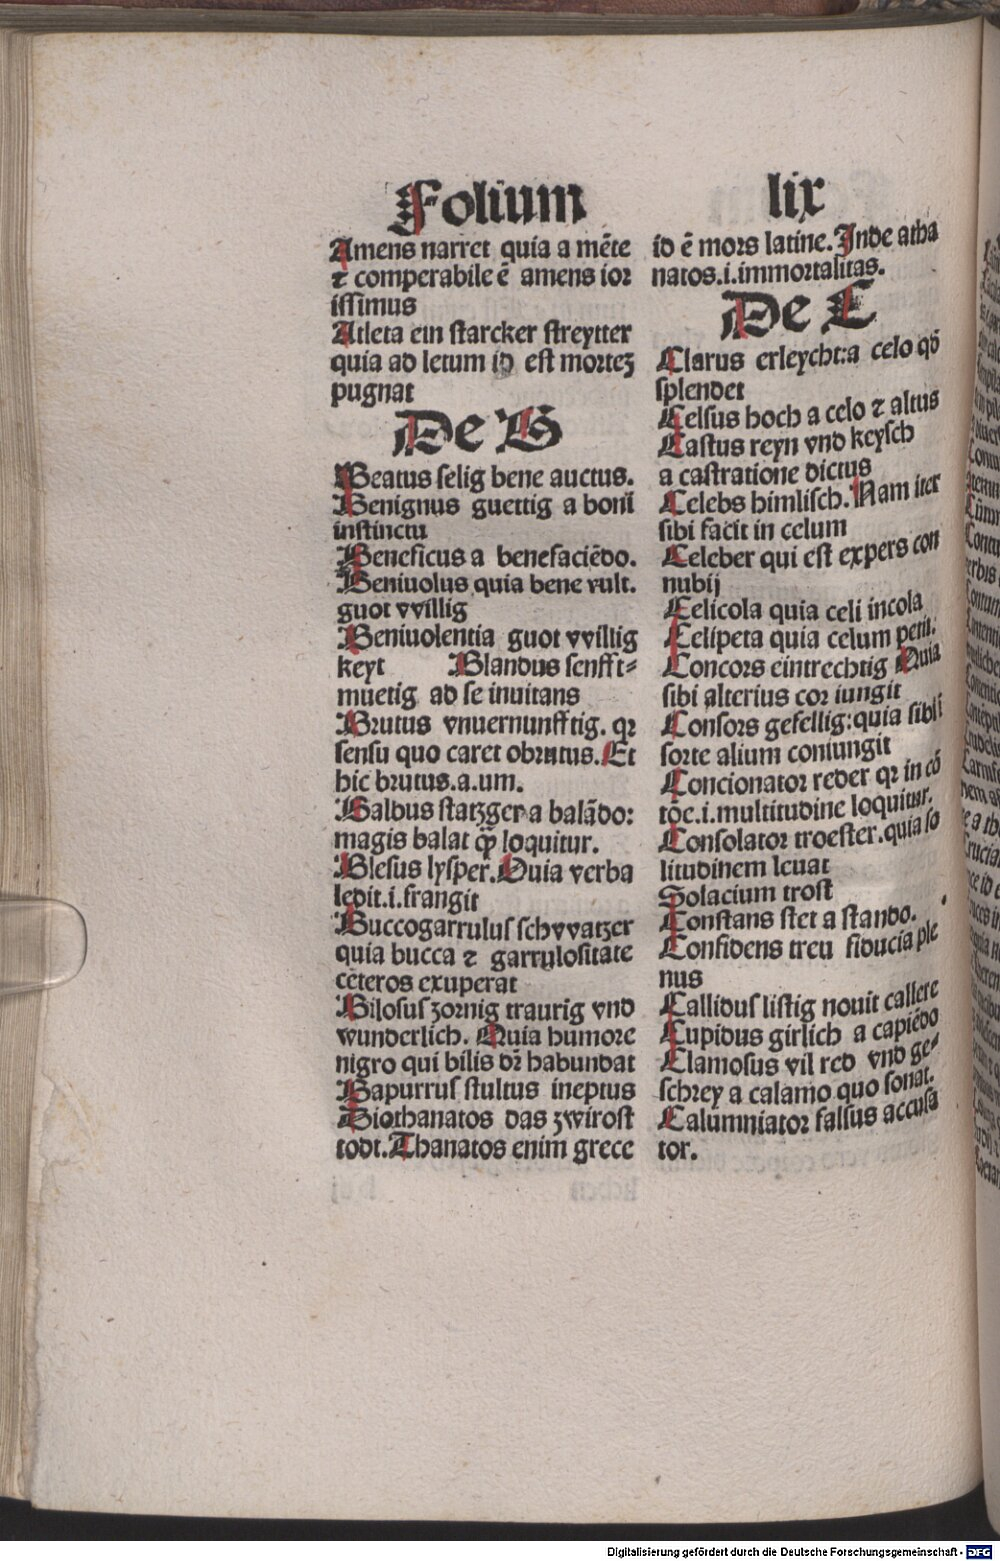 Folium lix
Amens narret quia a mēte
⁊ comperabile ē amens ior
issimus
Atleta ein starcker streytter
quia ad letum id est morteʒ
pugnat
De B
Beatus selig bene auctus.
Benignus guettig a boni
instinctu
Beneficus a benefaciēdo.
Beniuolus quia bene vult.
guot vvillig
Beniuolentia guot vvillig
keyt Blandus senfft⸗
muetig ad se inuitans
Brutus vnuernunfftig. qꝛ
sensu quo caret obrutus. Et
hic brutus.a.um.
Balbus statzger a balādo:
magis balat qꝫ loquitur.
Blesus lysper. Quia verba
ledit.i.frangit
Buccogarrulus schvvatzer
quia bucca ⁊ garrulositate
ceteros exuperat
Bilosus zornig traurig vnd
wunderlich. Quia humore
nigro qui bilis dr̄ habundat
Bapurrus stultus ineptus
Biothanatos das zwirost
todt. Thanatos enim grece
id ē mors latine. Inde atha
natos.i.immortalitas.
De C
Clarus erleycht:a celo qđ
splendet
Celsus hoch a celo ⁊ altus
Castus reyn vnd keysch
a castratione dictus
Celebs himlisch. Nam iter
sibi facit in celum
Celeber qui est expers con
nubij
Celicola quia celi incola
Celipeta quia celum petit.
Concors eintrechtig Quia
sibi alterius cor iungit
Consors gesellig:quia sibi
sorte alium coniungit
Concionator reder qꝛ in cō
tōe.i.multitudine loquitur.
Consolator troester.quia so
litudinem leuat
Solacium trost
Constans stet a stando.
Confidens treu fiducia ple
nus
Callidus listig nouit callere
Cupidus girlich a capiēdo
Clamosus vil red vnd ge⸗
schrey a calamo quo sonat.
Calumniator falsus accusa
tor.
Digitalisierung gefördert durch die Deutsche Forschungsgemeinschaft - DFG